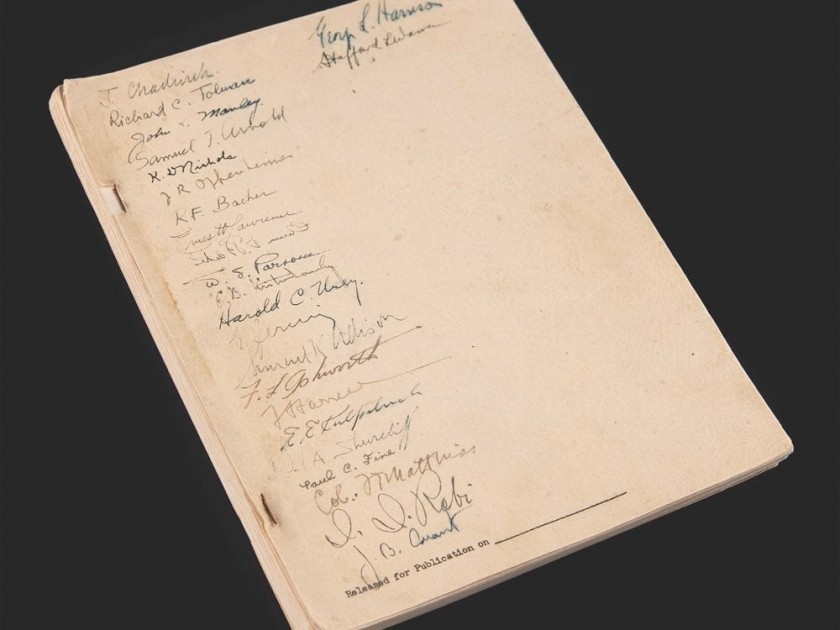 J. Chadwick
Richard C. Tolman
John Manley
Samuel T. Arnold
K. D Nichols
J R Oppenheimer
R.F. Bacher
Ernest Lawrence
W. S. Parsons
E. B.
Harold C. Urey.
E. Fermi
Samuel K Allison
F. L. Ashworth
E. E. Kirkpatrick
A. Shurcliff
Paul C. Fine
Col. Matthias
I. I. Rabi
J. B. Conant
Released for Publication on
L. Harrison
Stafford L Warren